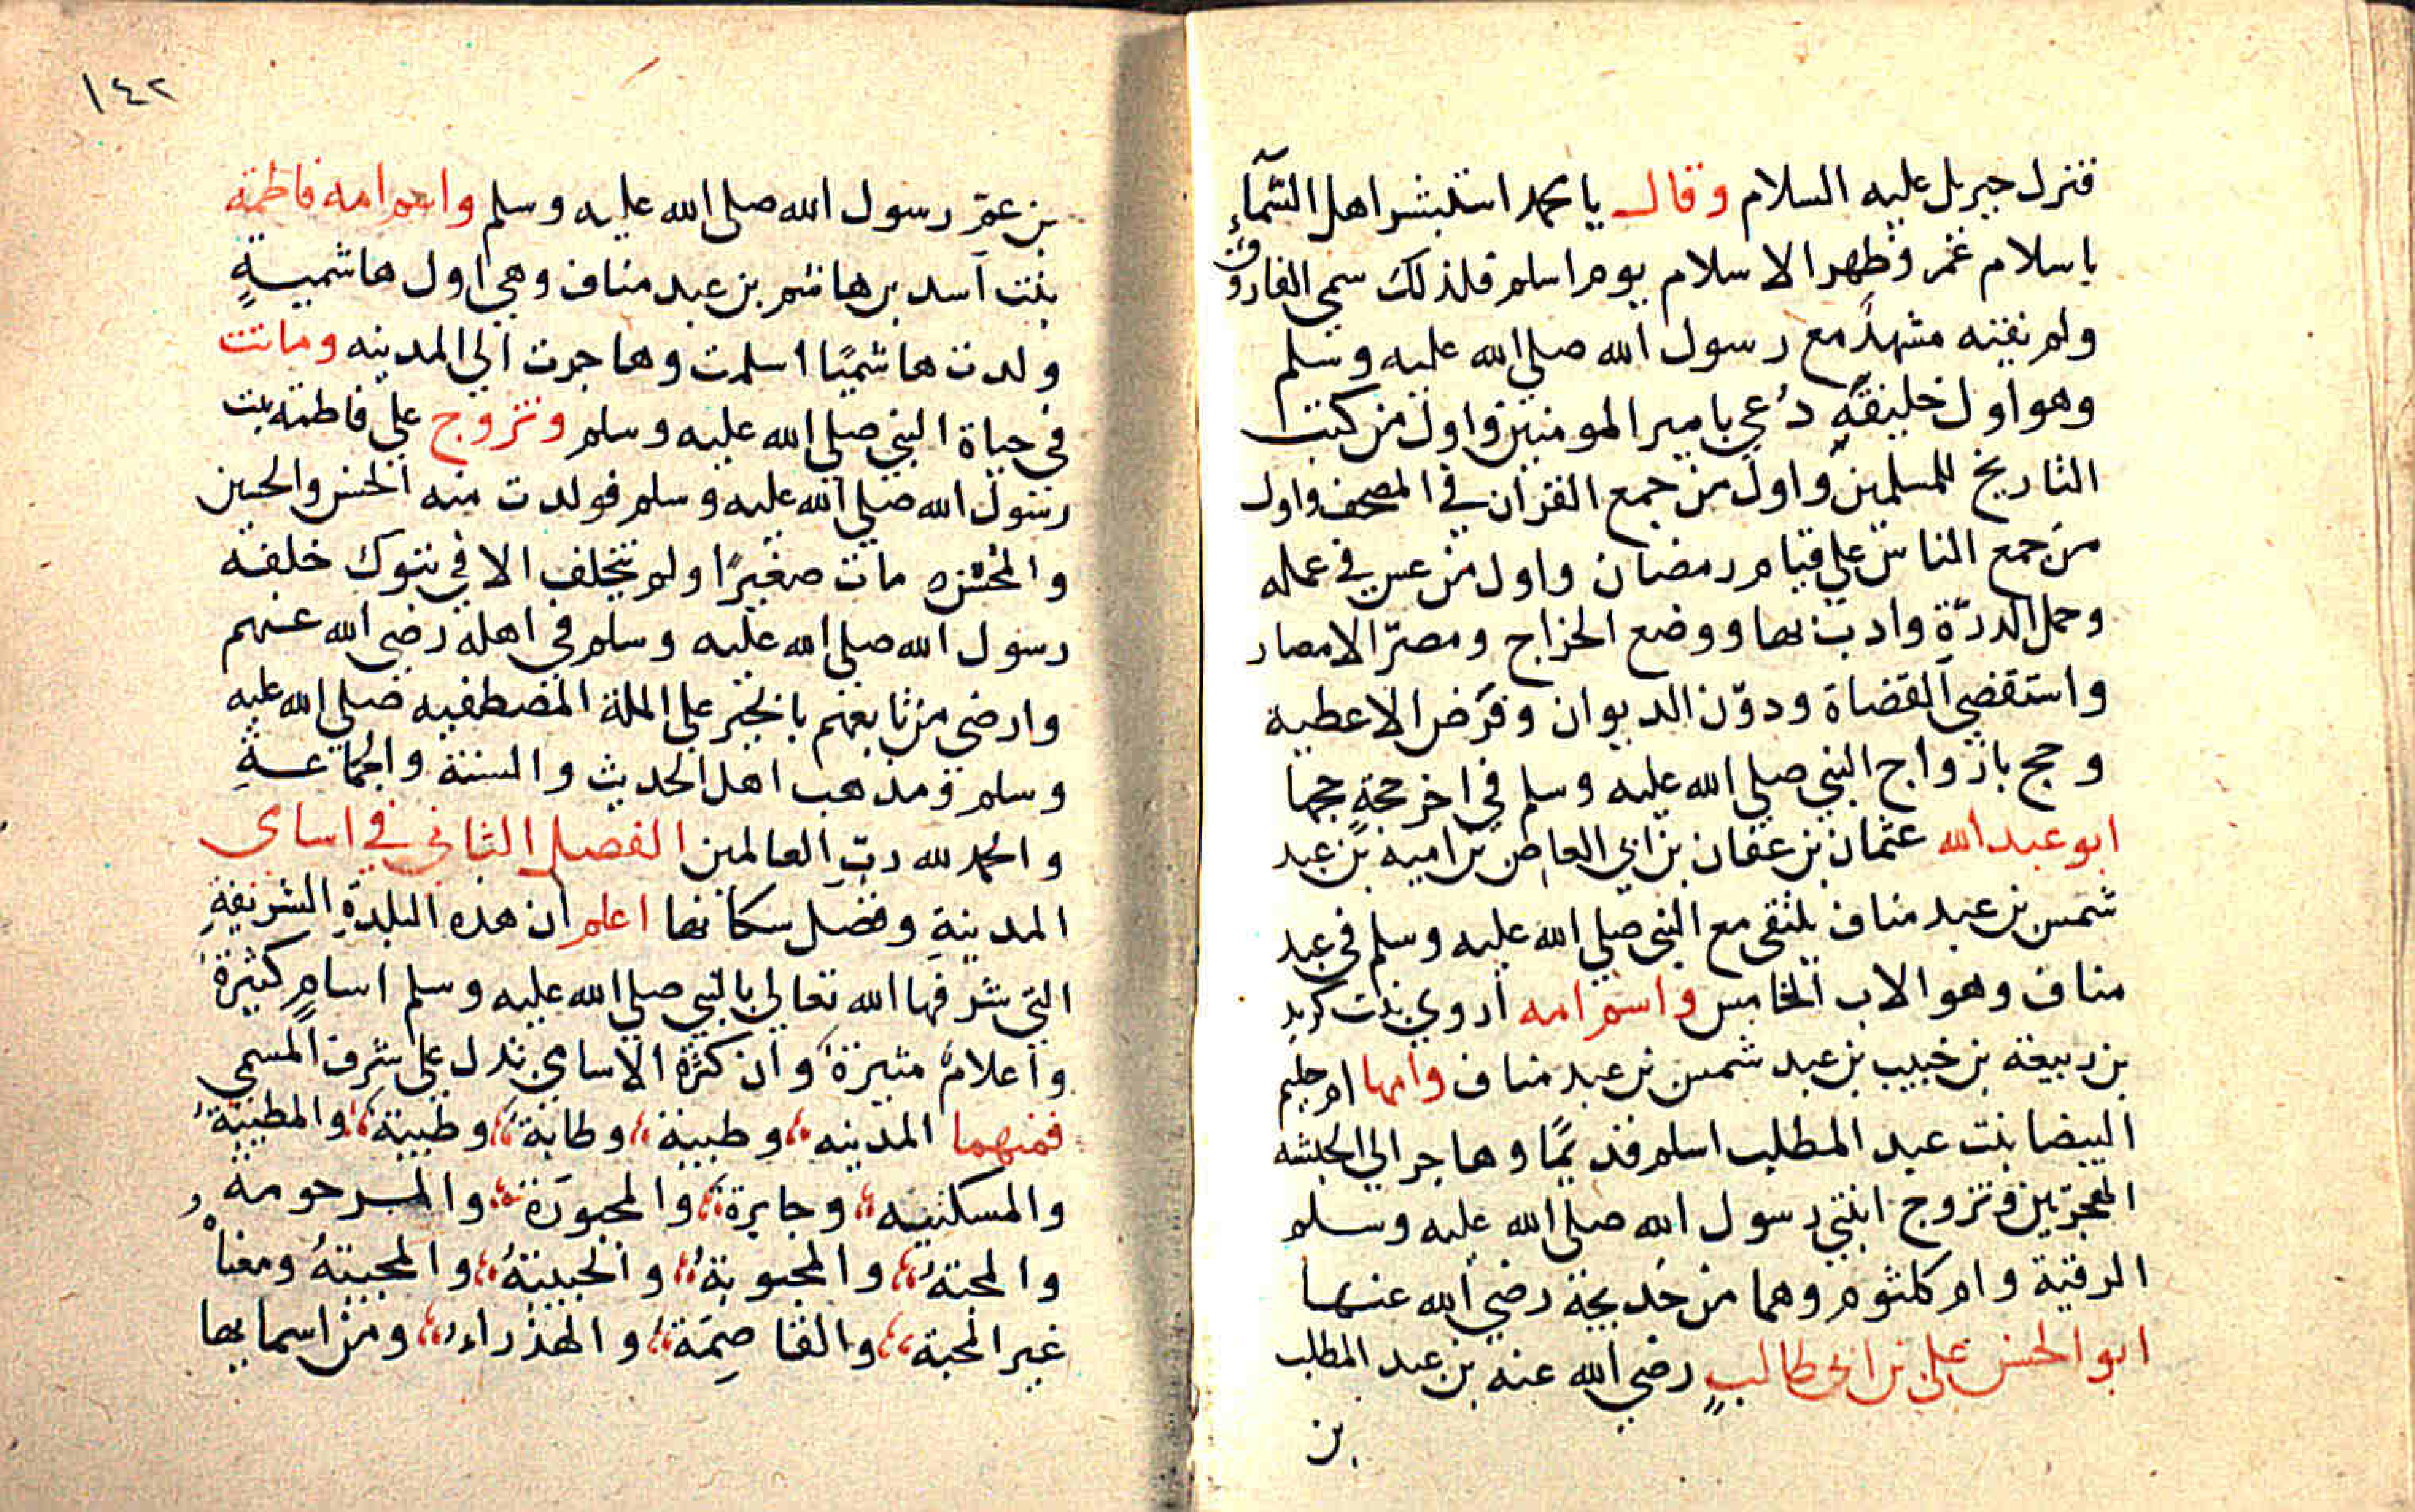 فنزل جبريل عليه السلام وقال يا محمد استبشر اهل السمآء
باسلام عمر وظهر الاسلام يوم اسلم فلذلك سمي الفاروق
ولم يفته مشهدٌ مع رسول الله صلي الله عليه وسلم
وهو اول خليفةٍ دُعي بامير المومنين واول من كتب
التاريخ للمسلمين واول من جمع القران في المصحف واول
من جمع الناس علي قيام رمضان واول من عس في عمله
وحمل الدرّةِ وادب بها ووضع الخراج ومصّر الامصار
واستقضي القضاة ودوّن الديوان وفرَض الاعطية
وحج بازواج النبي صلي الله عليه وسلم في اخر حجةٍ حجها
ابو عبد الله عثمان بن عفان بن ابي العاص بن امية بن عبد
شمس بن عبد مناف يلتقي مع النبي صلي الله عليه وسلم في عبد
مناف وهو الاب الخامس واسم امه اروي بنت كريز
بن ربيعة بن خبيب بن عبد شمس بن عبد مناف وامها ام حليم
البيضا بنت عبد المطلب اسلم قديمًا وهاجر الي الحبشه
الهجرتين وتزوج ابنتي رسول الله صلي الله عليه وسلم
الرقية وام كلثوم وهما من خديجة رضي الله عنها
ابو الحسن علي بن ابي طالبٍ رضي الله عنه بن عبد المطلب
بن
١٤٢
بن عمّ رسول الله صلي الله عليه وسلم واسم امه فاطمة
بنت اسد بن هاشم بن عبد مناف وهي اول هاشميةٍ
ولدت هاشميًا اسلمت وهاجرت الي المدينه وماتت
في حياة النبي صلي الله عليه وسلم وتزوج علي فاطمة بنت
رسول الله صلي الله عليه وسلم فولدت منه الحسن والحسين
والمحسن مات صغيرًا ولم يتخلف الا في تبوك خلفه
رسول الله صلي الله عليه وسلم في اهله رضي الله عنهم
وارضي من تابعهم بالخير علي الملة المصطفيه صلي الله عليه
وسلم ومذهب اهل الحديث والسنة والجماعةِ
والحمد لله ربّ العالمين الفصل الثاني في اسامى
المدينةِ وفضل سكانها اعلم ان هذه البلدةِ الشريفةِ
التي شرفها الله تعالي بالنبي صلي الله عليه وسلم اسامٍ كثيرة
واعلامٌ وان كثرة الاسامي تدل علي شرف المسمي
فمنهما المدينه وطيبة وطابة وطيبة والمطيبة
والمسكنيه وجابرة والمجبورَة والمرحومة
والمحبة والمحبوبة والحبيبةُ والمحببةُ ومعناه
غير المحبة والقاصِمَة والهذراء ومن اسمايها